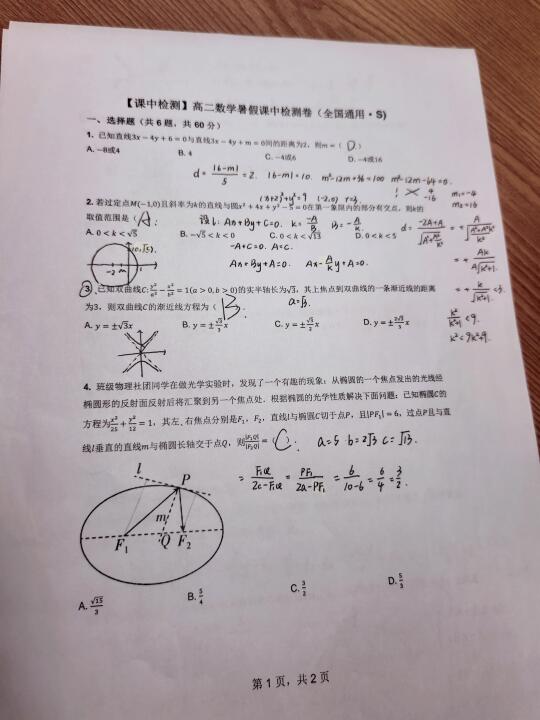 【课中检测】高二数学暑假课中检测卷（全国通用·S)
一、选择题（共 6 题，共 60 分）
1. 已知直线3x − 4y + 6 = 0与直线3x − 4y + m = 0间的距离为2，则m = ( D )
A. −8或4 B. 4 C. −4或6 D. −4或16
d = |6-m|/5 = 2. |6-m| = 10. m²-12m+36=100 m²-12m-64=0.
m₁=-4
m₂=16
(x+2)²+y²=9 (-2,0) r=3.
2. 若过定点M(−1,0)且斜率为k的直线与圆x² + 4x + y² − 5 = 0在第一象限内的部分有交点，则k的
取值范围是（ A.
设l: Ax+By+C=0. k=-A/B B=-A/k.
A. 0 < k < √5 B. −√5 < k < 0 C. 0 < k < √13 D. 0 < k < 5
-A+C=0. A=C.
Ax+By+A=0. Ax-A/k y+A=0.
3. 已知双曲线C: y²/a² − x²/b² = 1(a > 0, b > 0)的实半轴长为√3，其上焦点到双曲线的一条渐近线的距离
为3，则双曲线C的渐近线方程为（ B. a=√3.
A. y = ±√3x B. y = ±√3/3 x C. y = ±√3/2 x D. y = ±2√3/3 x
k²/(k²+1) < 9.
k² < 9k²+9.
4. 班级物理社团同学在做光学实验时，发现了一个有趣的现象：从椭圆的一个焦点发出的光线经
椭圆形的反射面反射后将汇聚到另一个焦点处．根据椭圆的光学性质解决下面问题：已知椭圆C的
方程为x²/25 + y²/12 = 1，其左、右焦点分别是F₁，F₂，直线l与椭圆C切于点P，且|PF₁| = 6，过点P且与直
线l垂直的直线m与椭圆长轴交于点Q，则|F₁Q|/|F₂Q| = ( C. a=5 b=2√3 c=√13.
= F₁Q/(2c-F₁Q) = PF₁/(2a-PF₁) = 6/(10-6) = 6/4 = 3/2.
l P
m
F₁ Q F₂
A. √15/3 B. 5/4 C. 3/2 D. 5/3
第 1 页，共 2 页